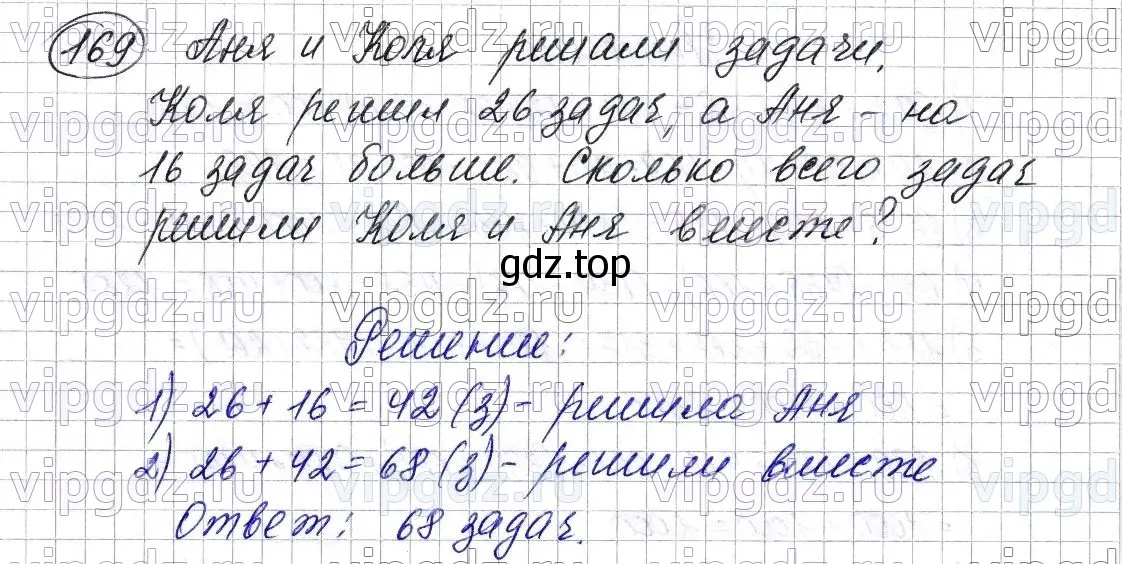 169 Аня и Коля решали задачи.
Коля решил 26 задач, а Аня – на
16 задач больше. Сколько всего задач
решили Коля и Аня вместе?
gdz.top
Решение:
1) 26 + 16 = 42 (з) – решила Аня
2) 26 + 42 = 68 (з) – решили вместе
Ответ: 68 задач.